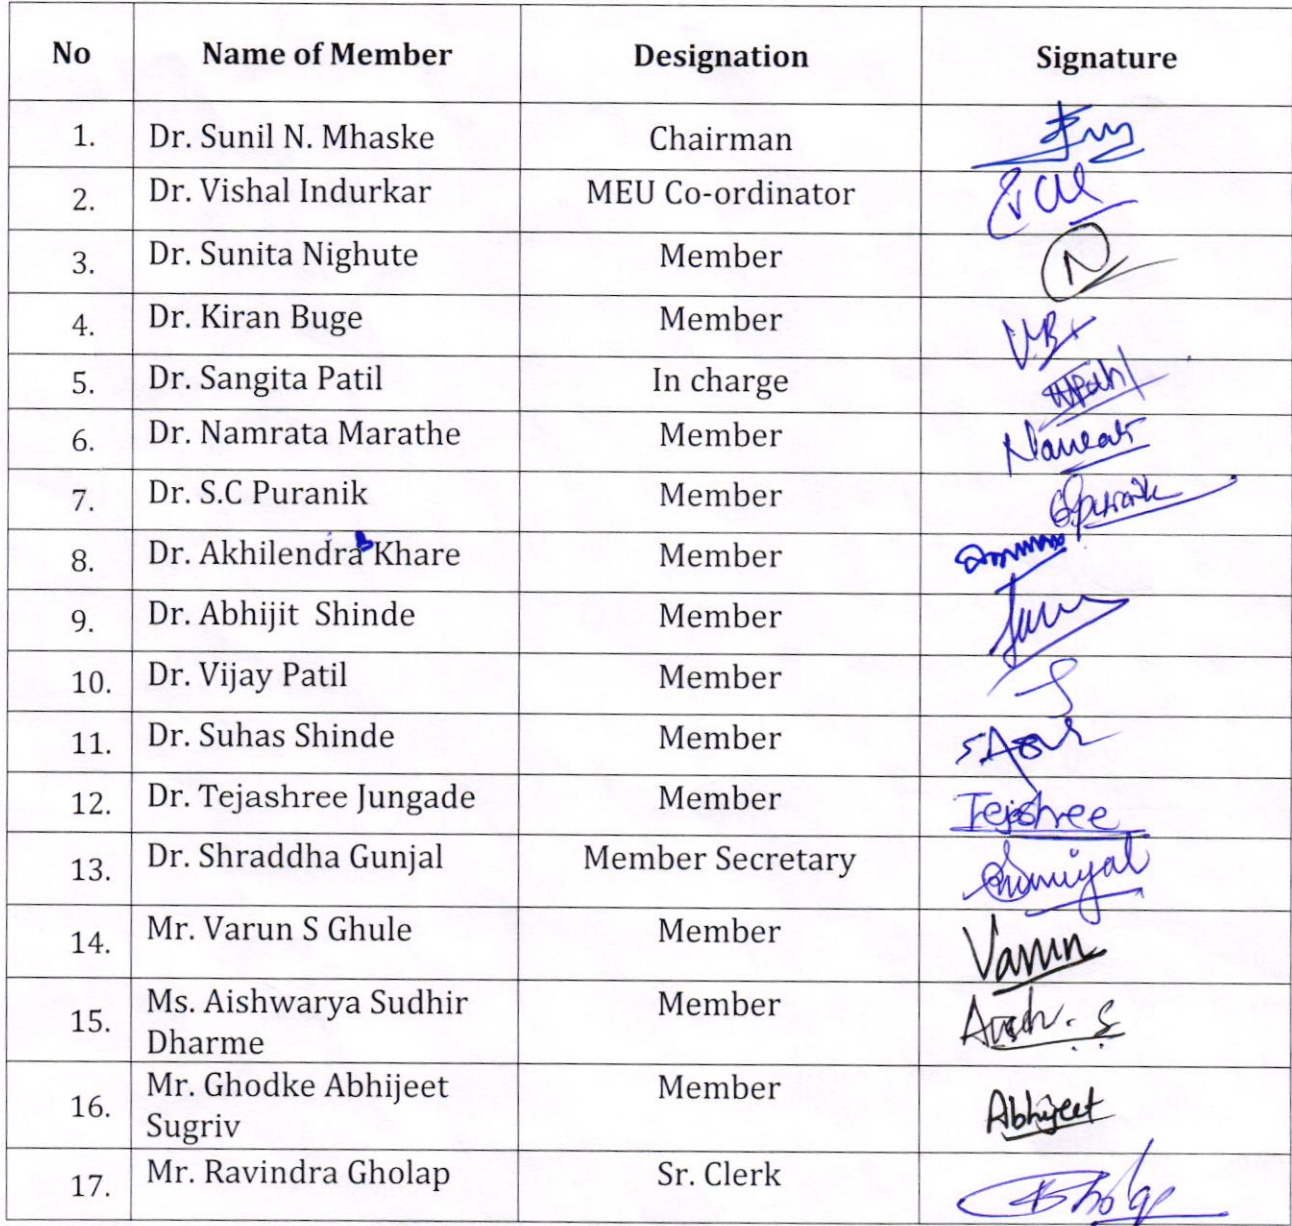 No Name of Member Designation Signature
1. Dr. Sunil N. Mhaske Chairman
2. Dr. Vishal Indurkar MEU Co-ordinator
3. Dr. Sunita Nighute Member N
4. Dr. Kiran Buge Member
5. Dr. Sangita Patil In charge
6. Dr. Namrata Marathe Member
7. Dr. S.C Puranik Member
8. Dr. Akhilendra Khare Member
9. Dr. Abhijit Shinde Member
10. Dr. Vijay Patil Member
11. Dr. Suhas Shinde Member
12. Dr. Tejashree Jungade Member Tejshree
13. Dr. Shraddha Gunjal Member Secretary
14. Mr. Varun S Ghule Member Varun
15. Ms. Aishwarya Sudhir Member
Dharme
16. Mr. Ghodke Abhijeet Member Abhijeet
Sugriv
17. Mr. Ravindra Gholap Sr. Clerk